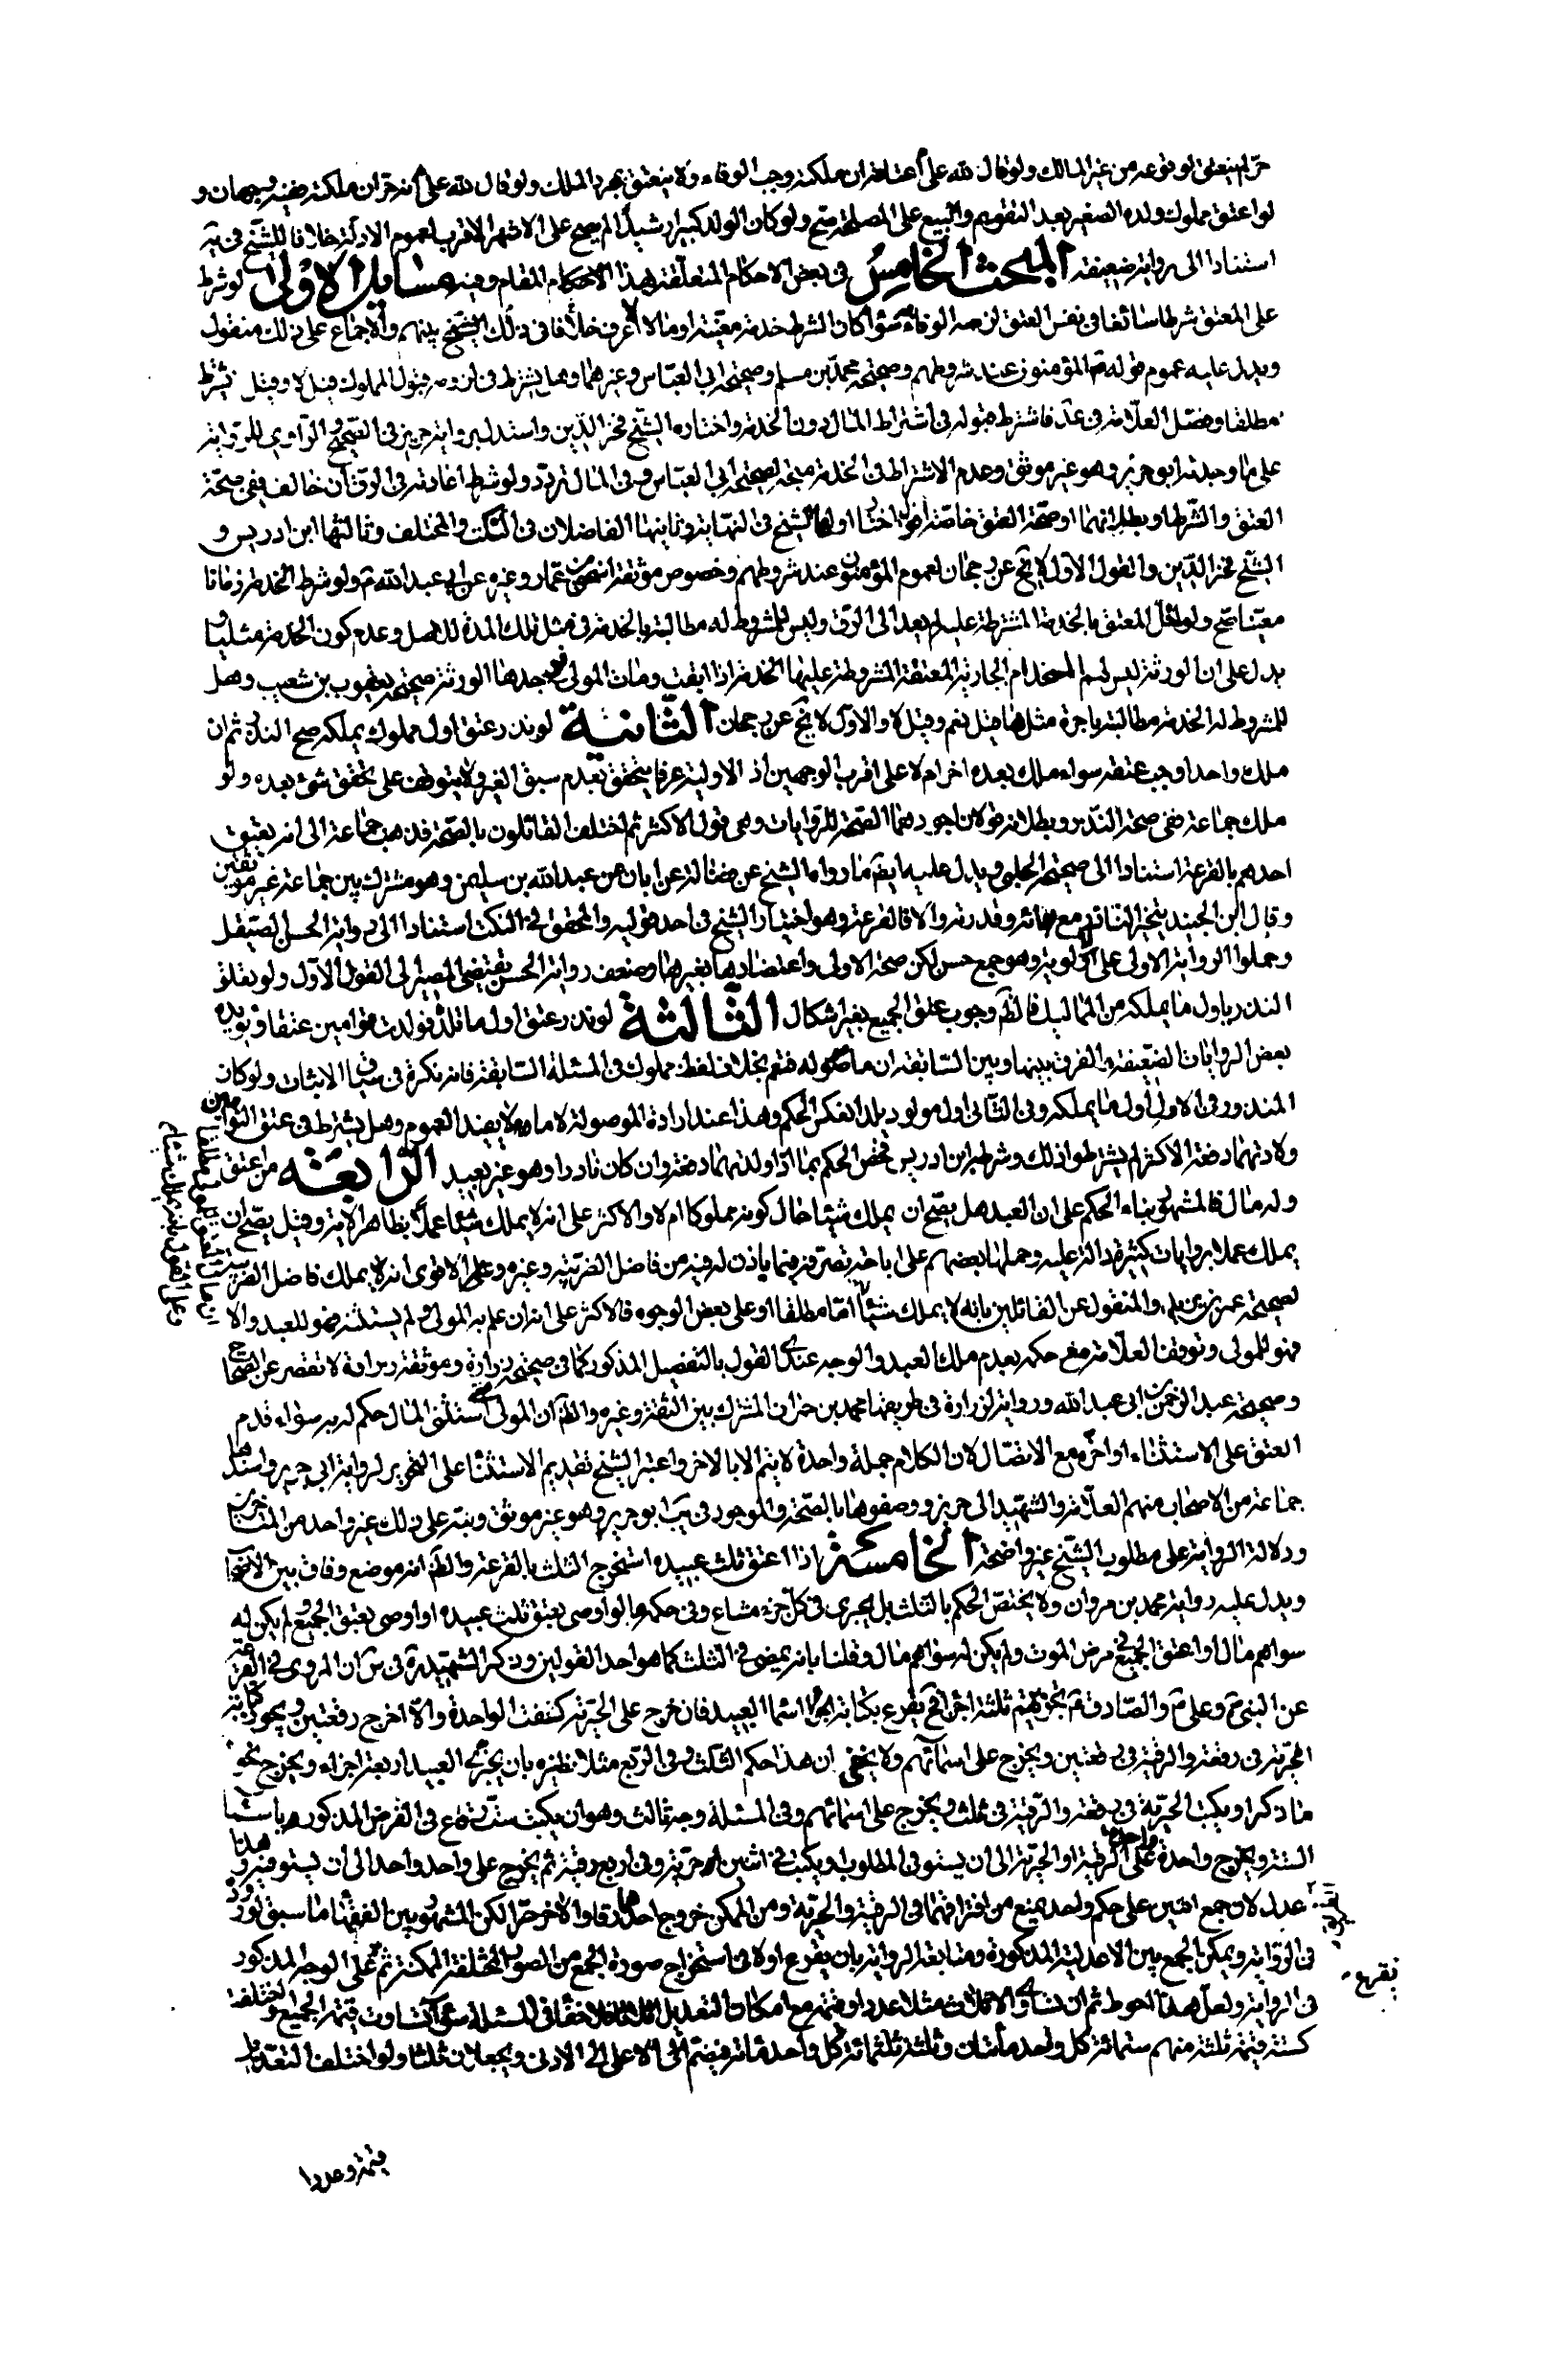 حرّ لم ينعتق لوقوعه من غير المالك ولو قال لله علىّ اعتاقه ان ملكته وجب الوفاء ولا ينعتق بمجرد الملك ولو قال لله علىّ انه حرّ ان ملكته ففيه وجهان و
لو اعتق مملوك ولده الصغير بعد التقويم والبيع على المصلحة صح ولو كان الولد كبيرا رشيدا لم يصح على الاشهر الاقرب لعموم الادلة خلافا للشيخ في يه
استنادا الى رواية ضعيفة المبحث الخامس في بعض الاحكام المتعلقة بهذا المقام وفيه مسايل الاولى لو شرط
على المعتق شرطا سائغا في نفس العتق لزمه الوفاء سواء كان الشرط خدمة معينة او مالا لا اعرف خلافا في ذلك بينهم والاجماع على ذلك منقول
ويدل عليه عموم قوله المؤمنون عند شروطهم وصحيحة محمد بن مسلم وصحيحة ابي العباس وغيرهما وهل يشترط في لزومه قبول المملوك قيل لا وقيل يشترط
مطلقا وفصّل العلامة في عد فاشترط قبوله في اشتراط المال دون الخدمة واختاره الشيخ فخر الدين واستدل برواية حريز في الصحيح والراوي للرواية
على ما وجدته ابو جرير وهو غير موثق وعدم الاشتراط في الخدمة متجه لصحيحة ابي العباس وفي المال تردد ولو شرط اعادته في الرق ان خالف ففي صحة
العتق والشرط او بطلانهما او صحة العتق خاصة اقوال اختار اولها الشيخ في النهاية وثانيها الفاضلان في النكت والمختلف وثالثها ابن ادريس و
الشيخ فخر الدين والقول الاول لا يخ عن رجحان لعموم المؤمنون عند شروطهم وخصوص موثقة اسحق بن عمار وغيره عن ابي عبد الله ع ولو شرط الخدمة زمانا
معينا صح ولو اخل المعتق بالخدمة المشترطة عليه لم يعد الى الرق وليس للمشروط له مطالبته بالخدمة في مثل تلك المدة للاصل وعدم كون الخدمة مثليا و
يدل على ان الورثة ليس لهم استخدام الجارية المعتقة المشروطة عليها الخدمة اذا ابقت ومات المولى فوجدها الورثة صحيحة يعقوب بن شعيب وهل
للمشروط له الخدمة مطالبته باجرة مثلها قيل نعم وقيل لا والاول لا يخ عن رجحان الثانية لو نذر عتق اول مملوك يملكه صح النذر ثم ان
ملك واحدا وجب عتقه سواء ملك بعده اخر ام لا على اقرب الوجهين اذ الاولية عرفا يتحقق بعدم سبق الغير ولا يتوقف على تحقق شئ بعده ولو
ملك جماعة ففي صحة النذر وبطلانه قولان اجودهما الصحة للروايات وهى قول الاكثر ثم اختلف القائلون بالصحة فذهب جماعة الى انه يعتق
احدهم بالقرعة استنادا الى صحيحة الحلبي ويدل عليه ايضا ما رواه الشيخ عن فضالة عن ابان عن عبد الله بن سليمن وهو مشترك بين جماعة غير موثقين
وقال ابن الجنيد يتخير الناذر مع بقائه وقدرته والا فالقرعة وهو اختيار الشيخ في احد قوليه والمحقق في النكت استنادا الى رواية الحسن الصيقل
وحملوا الرواية الاولى على الاولوية وهو جمع حسن لكن صحة الاولى واعتضادها بغيرها وضعف رواية الحسن يقتضي المصير الى القول الاول ولو تعلق
النذر باول ما يملكه من المماليك فالظ وجوب عتق الجميع بغير اشكال الثالثة لو نذر عتق اول ما تلده فولدت توامين عتقا ويؤيده
بعض الروايات الضعيفة والفرق بينها وبين السابقة ان ما موصولة فتعم بخلاف لفظ مملوك في المسئلة السابقة فانه نكرة في سياق الاثبات ولو كان
المنذور في الاولى اول ما يملكه وفي الثاني اول مولود تلد انعكس الحكم وهذا عند ارادة الموصولة لا ما لا يفيد العموم وهل يشترط في عتق التوامين
ولادتهما دفعة الاكثر لم يشترطوا ذلك وشرط ابن ادريس تخص الحكم بما اذا ولدتهما دفعة وان كان نادرا وهو غير بعيد الرابعة من اعتق
وله مال فالمشهور بناء الحكم على ان العبد هل يصح ان يملك شيئا حال كونه مملوكا ام لا والاكثر على انه لا يملك شيئا عملا بظاهر الاية وقيل يصح ان
يملك عملا بروايات كثيرة دالة عليه وحملها بعضهم على اباحة تصرفه فيما ياذن له فيه من فاضل الضريبة وغيره وعلى الاقوى انه لا يملك فاضل الضريبة
لصحيحة عمر بن يزيد والمنقول عن القائلين بانه لا يملك شيئا اما مطلقا او على بعض الوجوه فالاكثر على انه ان علم به المولى ولم يستثنه فهو للعبد والا
فهو للمولى وتوقف العلامة مع حكمه بعدم ملك العبد والوجه عندى القول بالتفصيل المذكور كما في صحيحة زرارة وموثقة زرارة لا تقصر عن الصحاح
وصحيحة عبد الرحمن بن ابي عبد الله ورواية لزرارة في طريقها محمد بن حمران المشترك بين الثقة وغيره والظ ان المولى متى استثنى المال حكم له به سواء قدم
العتق على الاستثناء او اخره مع الاتصال لان الكلام جملة واحدة لا يتم الا بالاخر واعتبر الشيخ تقديم الاستثنا على التحرير لرواية ابي جرير واسندها
جماعة من الاصحاب منهم العلامة والشهيد الى حريز ووصفوها بالصحة والموجود في يب ابو جرير وهو غير موثق ونبه على ذلك غير واحد من المتاخرين
ودلالة الرواية على مطلوب الشيخ غير واضحة الخامسة اذا اعتق ثلث عبيده استخرج الثلث بالقرعة والظ انه موضع وفاق بين الاصحاب
ويدل عليه رواية محمد بن مروان ولا يختص الحكم بالثلث بل يجرى في كل جزء مشاع وفي حكمه ما لو اوصى بعتق ثلث عبيده او اوصى بعتق الجميع ولم يكن له
سواهم مال او اعتق الجميع في مرض الموت ولم يكن له سواهم مال وقلنا بانه يمضى في الثلث كما هو احد القولين وذكر الشهيد ره في س ان المروى في القرعة
عن النبي ص وعلى ع والصادق ع تجزيتهم ثلثة اجزاء ثم يقرع بكتابة اسما العبيد فان خرج على الحرية كفت الواحدة والا اخرج رقعتين ويجوز كتابة
الحرية في رقعة والرقية في رقعتين ويخرج على اسمائهم ولا يخفى ان هذا حكم الثلث وفي الربع مثلا نظيره بان يجزي العبيد اربعة اجزاء ويخرج نحو
ما ذكر او يكتب الحرية في رقعة والرقية في ثلث ويخرج على اسمائهم وفي المسئلة وجه ثالث وهو ان يكتب ست رقاع في الفرض المذكور باسماء
الستة ويخرج واحدة واحدة على الرقية او الحرية الى ان يستوفي المطلوب او يكتب في اثنين حرية وفي اربع رقية ثم يخرج على واحد واحد الى ان يستوفيه وهذا
عدل لان جمع اثنين على حكم واحد يمنع من افتراقهما في الرقية والحرية ومن الممكن خروج احدهما رقا والاخر حرا لكن المشهور بين الفقها ما سبق لوروده
في الرواية ويمكن الجمع بين الاعدلية المذكورة ومتابعة الرواية بان يقرع اولا في استخراج صورة الجمع من الصور المختلفة الممكنة ثم على الوجه المذكور
في الرواية ولعل هذا احوط ثم ان تساوى الاثلاث مثلا عددا وقيمة مع امكان التعديل فلا خفأ في المسئلة سواء تساوت قيمة الجميع او اختلفت
كستة قيمة ثلثة منهم ستمائة كل واحد مأتان وثلثة ثلثمائة كل واحد مائة فيضم الاعلى الى الادنى ويجعلان ثلثا ولو اختلف التعديل
يقرع
قيمة وعددا